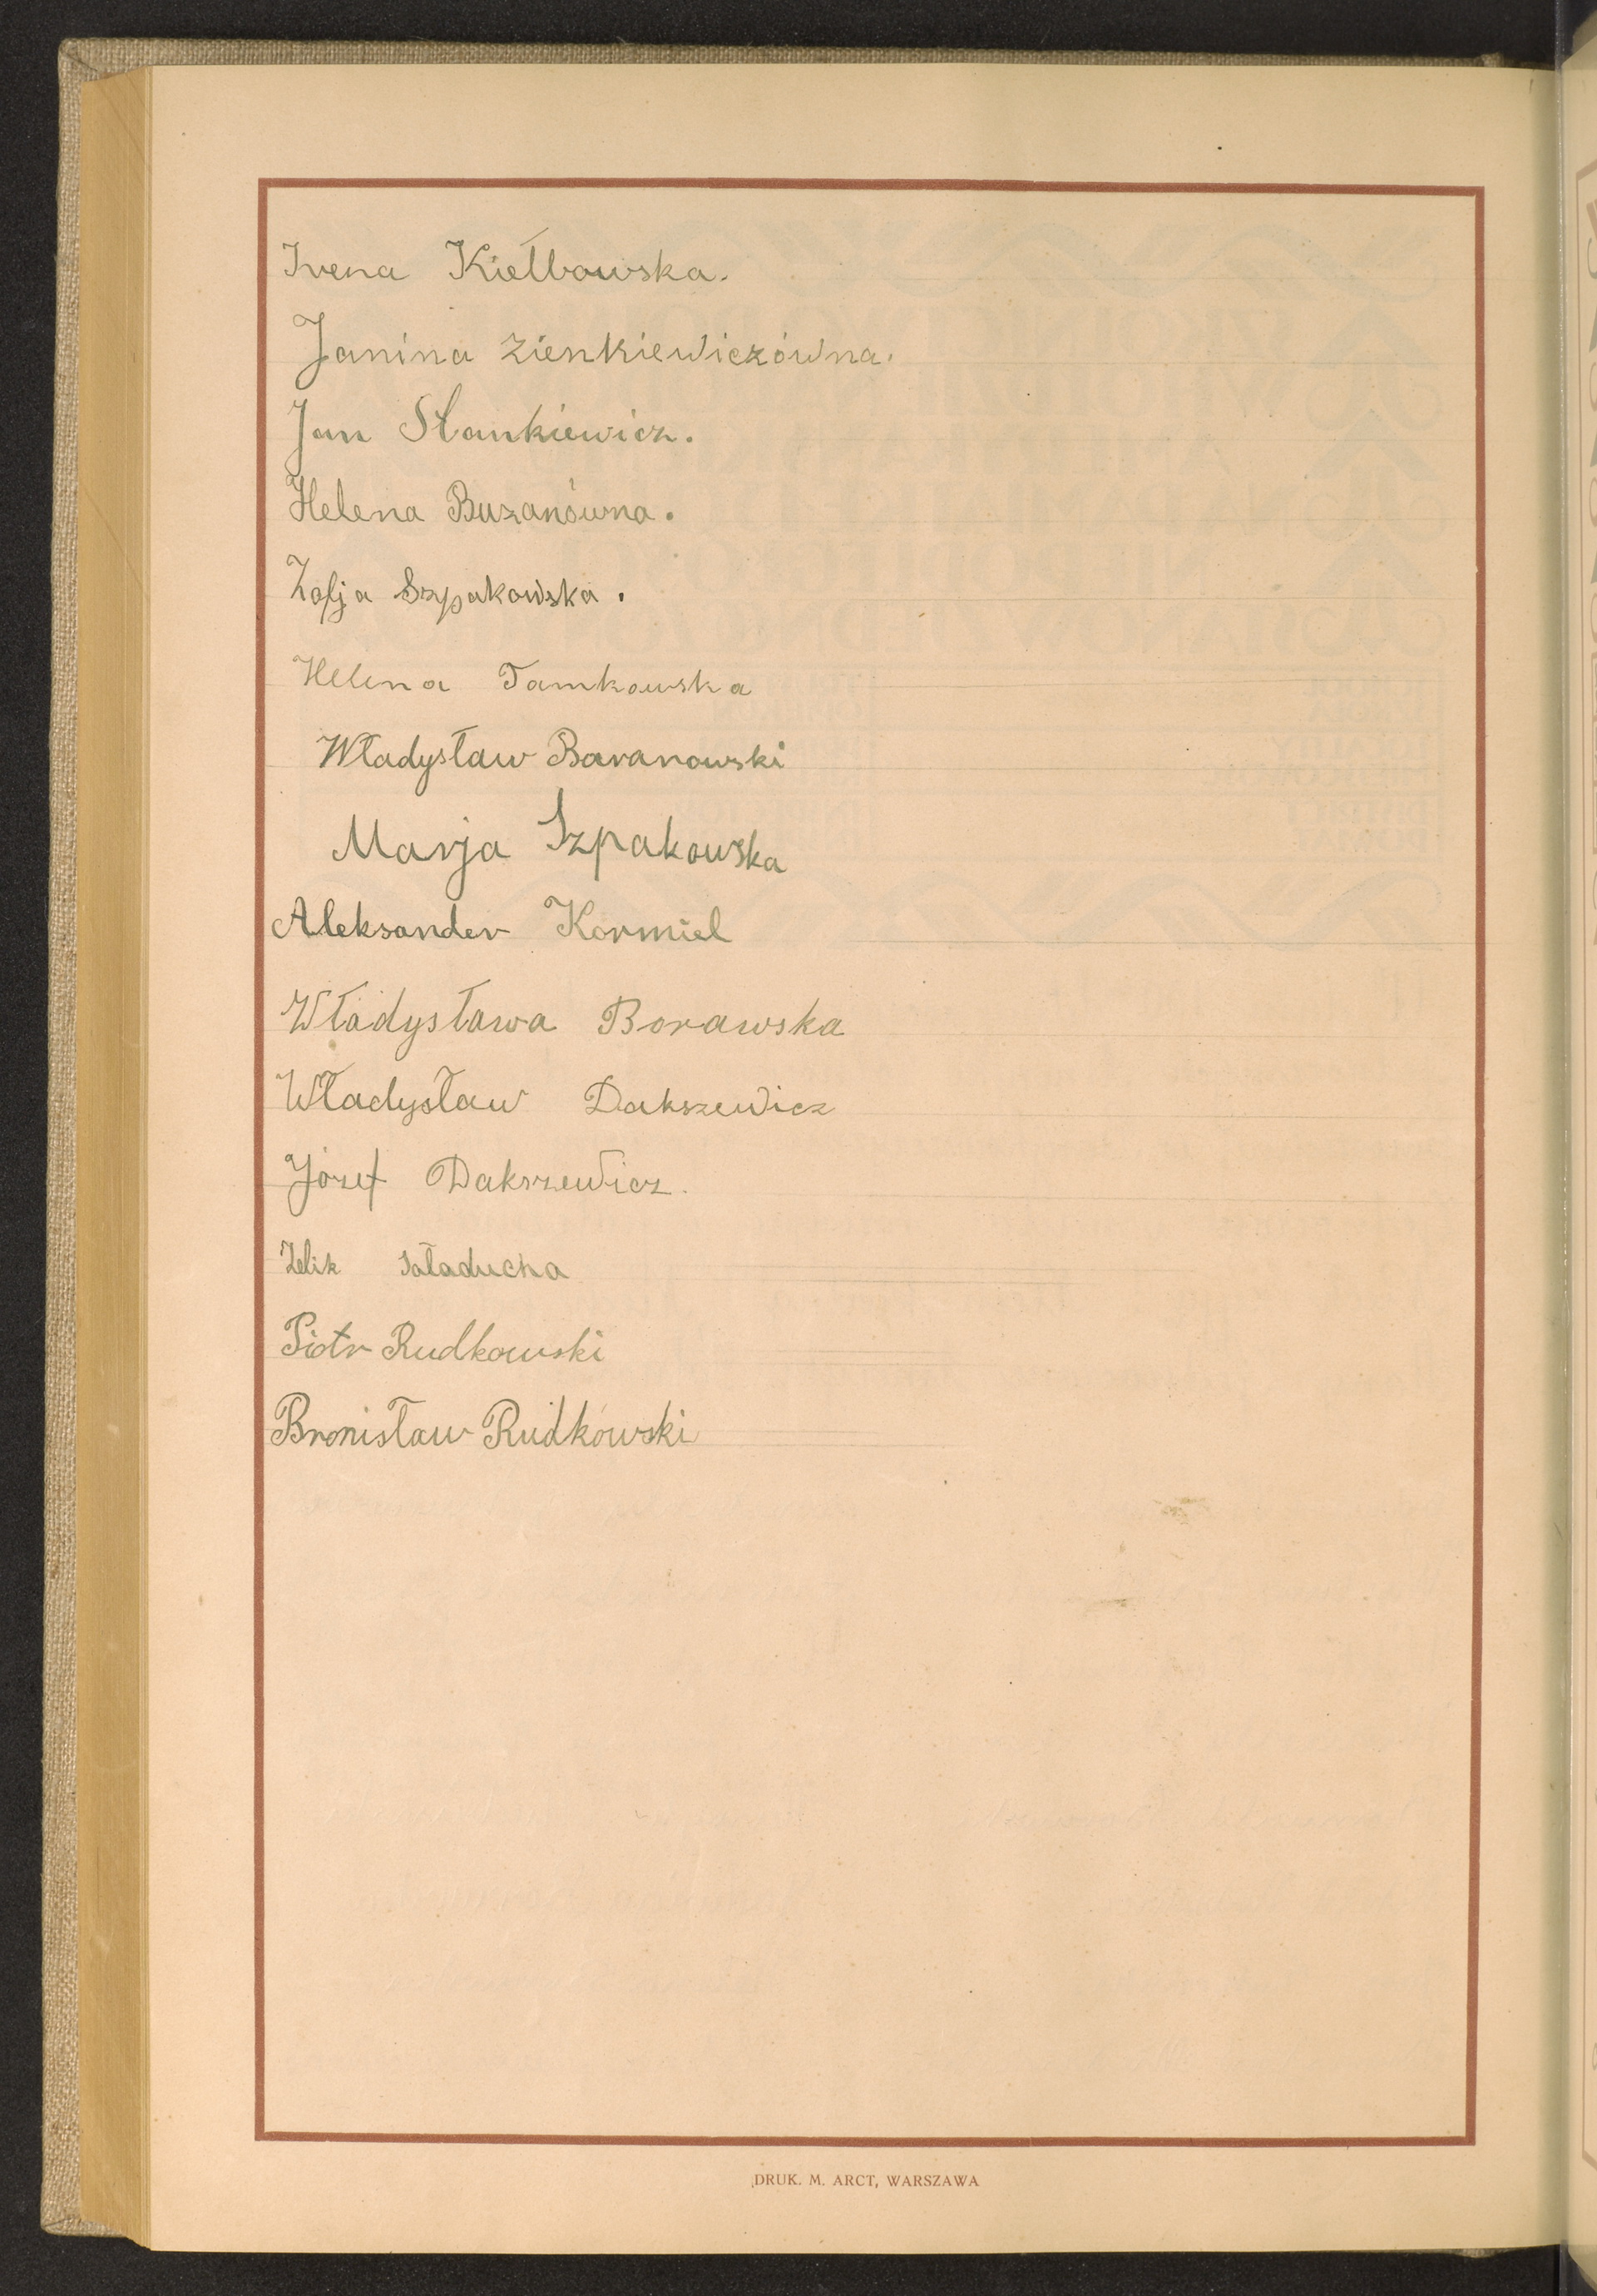 Irena Kiełbowska.
Janina Zienkiewiczówna.
Jan Stankiewicz.
Helena Buzanówna.
Zofja Szpakowska.
Helena Tamkowska
Władysław Baranowski
Marja Szpakowska
Aleksander Kormiel
Władysława Borawska
Władysław Dakszewicz
Józef Dakszewicz.
Zelik Sataducha
Piotr Rudkowski
Bronisław Rudkowski
DRUK. M. ARCT, WARSZAWA